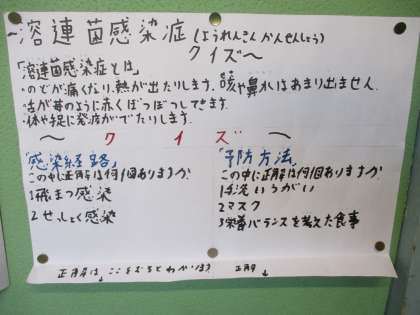 ~溶連菌感染症(ようれんきんかんせんしょう)
クイズ～
「溶連菌感染症とは」
・のどが痛くなり、熱が出たりします。咳や鼻水はあまり出ません。
・舌が苺のように赤くぼつぼつしてきます。
・体や手足に発疹がでたりします。
～ ク イ ズ ～
「感染経路」
この中に正解は何個ありますか
1飛まつ感染
2せっしょく感染
「予防方法」
この中に正解は何個ありますか
1手洗いうがい
2マスク
3栄養バランスを考えた食事
正解は ここをめくるとわかります 正解